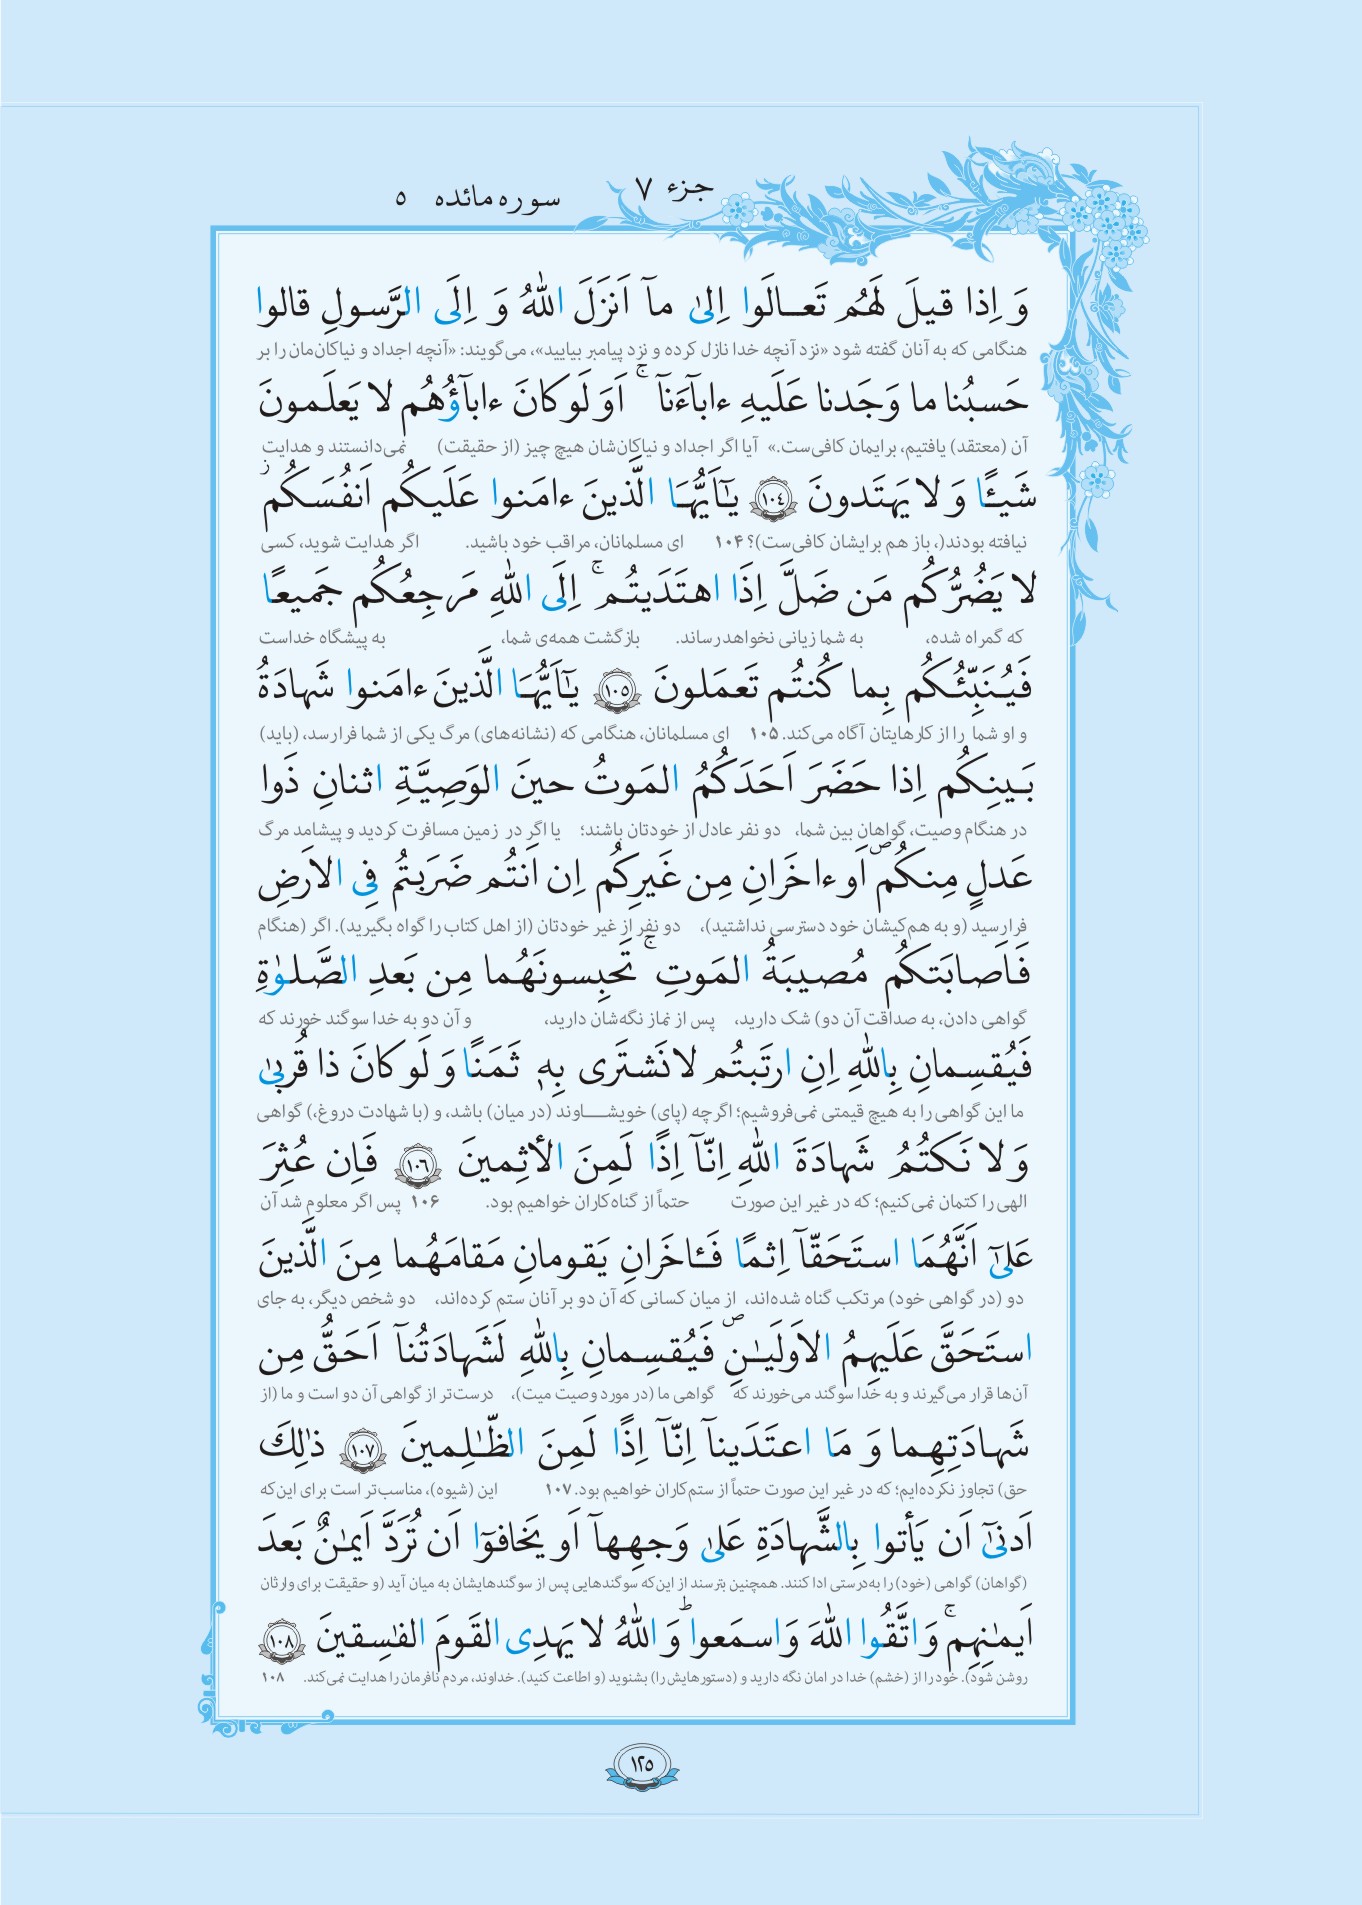 جزء ٧ سوره مائده ٥
وَ اِذا قیلَ لَهُم تَعـالَوا اِلیٰ ماۤ اَنزَلَ اللّٰهُ وَ اِلَی الرَّسولِ قالوا
هنگامی که به آنان گفته شود «نزد آنچه خدا نازل کرده و نزد پیامبر بیایید»، می‌گویند: «آنچه اجداد و نیاکان‌مان را بر
حَسبُنا ما وَجَدنا عَلَیهِ ءاباۤءَناۤ ۚ اَوَ لَو کانَ ءاباۤؤُهُم لا یَعلَمونَ
آن (معتقد) یافتیم، برایمان کافی‌ست.» آیا اگر اجداد و نیاکان‌شان هیچ چیز (از حقیقت) نمی‌دانستند و هدایت
شَیـًٔا وَ لا یَهتَدونَ ﴿١٠٤﴾ یـٰۤاَیُّهَا الَّذینَ ءامَنوا عَلَیکُم اَنفُسَکُم ز
نیافته بودند(، باز هم برایشان کافی‌ست)؟ ۱۰۴ ای مسلمانان، مراقب خود باشید. اگر هدایت شوید، کسی
لا یَضُرُّکُم مَن ضَلَّ اِذَا اهتَدَیتُم ۚ اِلَی اللّٰهِ مَرجِعُکُم جَمیعًا
که گمراه شده، به شما زیانی نخواهد رساند. بازگشت همه‌ی شما، به پیشگاه خداست
فَیُنَبِّئُکُم بِما کُنتُم تَعمَلونَ ﴿١٠٥﴾ یـٰۤاَیُّهَا الَّذینَ ءامَنوا شَهادَةُ
و او شما را از کارهایتان آگاه می‌کند. ۱۰۵ ای مسلمانان، هنگامی که (نشانه‌های) مرگ یکی از شما فرا رسد، (باید)
بَینِکُم اِذا حَضَرَ اَحَدَکُمُ المَوتُ حینَ الوَصِیَّةِ اثنانِ ذَوا
در هنگام وصیت، گواهان بین شما، دو نفر عادل از خودتان باشند؛ یا اگر در زمین مسافرت کردید و پیشامد مرگ
عَدلٍ مِنکُم ص اَو ءاخَرانِ مِن غَیرِکُم اِن اَنتُم ضَرَبتُم فِی الاَرضِ
فرا رسید (و به هم‌کیشان خود دسترسی نداشتید)، دو نفر از غیر خودتان (از اهل کتاب را گواه بگیرید). اگر (هنگام
فَاَصابَتکُم مُصیبَةُ المَوتِ ۚ تَحبِسونَهُما مِن بَعدِ الصَّلوٰةِ
گواهی دادن، به صداقت آن دو) شک دارید، پس از نماز نگه‌شان دارید، و آن دو به خدا سوگند خورند که
فَیُقسِمانِ بِاللّٰهِ اِنِ ارتَبتُم لا نَشتَری بِهٖ ثَمَنًا وَ لَو کانَ ذا قُربیٰ
ما این گواهی را به هیچ قیمتی نمی‌فروشیم؛ اگرچه (پای) خویشـاوند (در میان) باشد، و (با شهادت دروغ،) گواهی
وَ لا نَکتُمُ شَهادَةَ اللّٰهِ اِنّاۤ اِذًا لَمِنَ الأثِمینَ ﴿١٠٦﴾ فَاِن عُثِرَ
الهی را کتمان نمی‌کنیم؛ که در غیر این صورت حتماً از گناه‌کاران خواهیم بود. ۱۰۶ پس اگر معلوم شد آن
عَلیٰۤ اَنَّهُمَا استَحَقّاۤ اِثمًا فَـٔاخَرانِ یَقومانِ مَقامَهُما مِنَ الَّذینَ
دو (در گواهی خود) مرتکب گناه شده‌اند، از میان کسانی که آن دو بر آنان ستم کرده‌اند، دو شخص دیگر، به جای
استَحَقَّ عَلَیهِمُ الاَولَیـٰنِ ص فَیُقسِمانِ بِاللّٰهِ لَشَهادَتُناۤ اَحَقُّ مِن
آن‌ها قرار می‌گیرند و به خدا سوگند می‌خورند که گواهی ما (در مورد وصیت میت)، درست‌تر از گواهی آن دو است و ما (از
شَهادَتِهِما وَ مَا اعتَدَیناۤ اِنّاۤ اِذًا لَمِنَ الظّـٰلِمینَ ﴿١٠٧﴾ ذٰلِكَ
حق) تجاوز نکرده‌ایم؛ که در غیر این صورت حتماً از ستم‌کاران خواهیم بود. ۱۰۷ این (شیوه)، مناسب‌تر است برای این‌که
اَدنیٰۤ اَن یَأتوا بِالشَّهادَةِ عَلیٰ وَجهِهاۤ اَو یَخافوۤا اَن تُرَدَّ اَیمٰنٌ بَعدَ
(گواهان) گواهی (خود) را به‌درستی ادا کنند. همچنین بترسند از این‌که سوگندهایی پس از سوگندهایشان به میان آید (و حقیقت برای وارثان
اَیمٰنِهِم ۚ وَ اتَّقُوا اللّٰهَ وَ اسمَعوا ؕ وَ اللّٰهُ لا یَهدِی القَومَ الفٰسِقینَ ﴿١٠٨﴾
روشن شود). خود را از (خشم) خدا در امان نگه دارید و (دستورهایش را) بشنوید (و اطاعت کنید). خداوند، مردم نافرمان را هدایت نمی‌کند. ۱۰۸
١٢٥